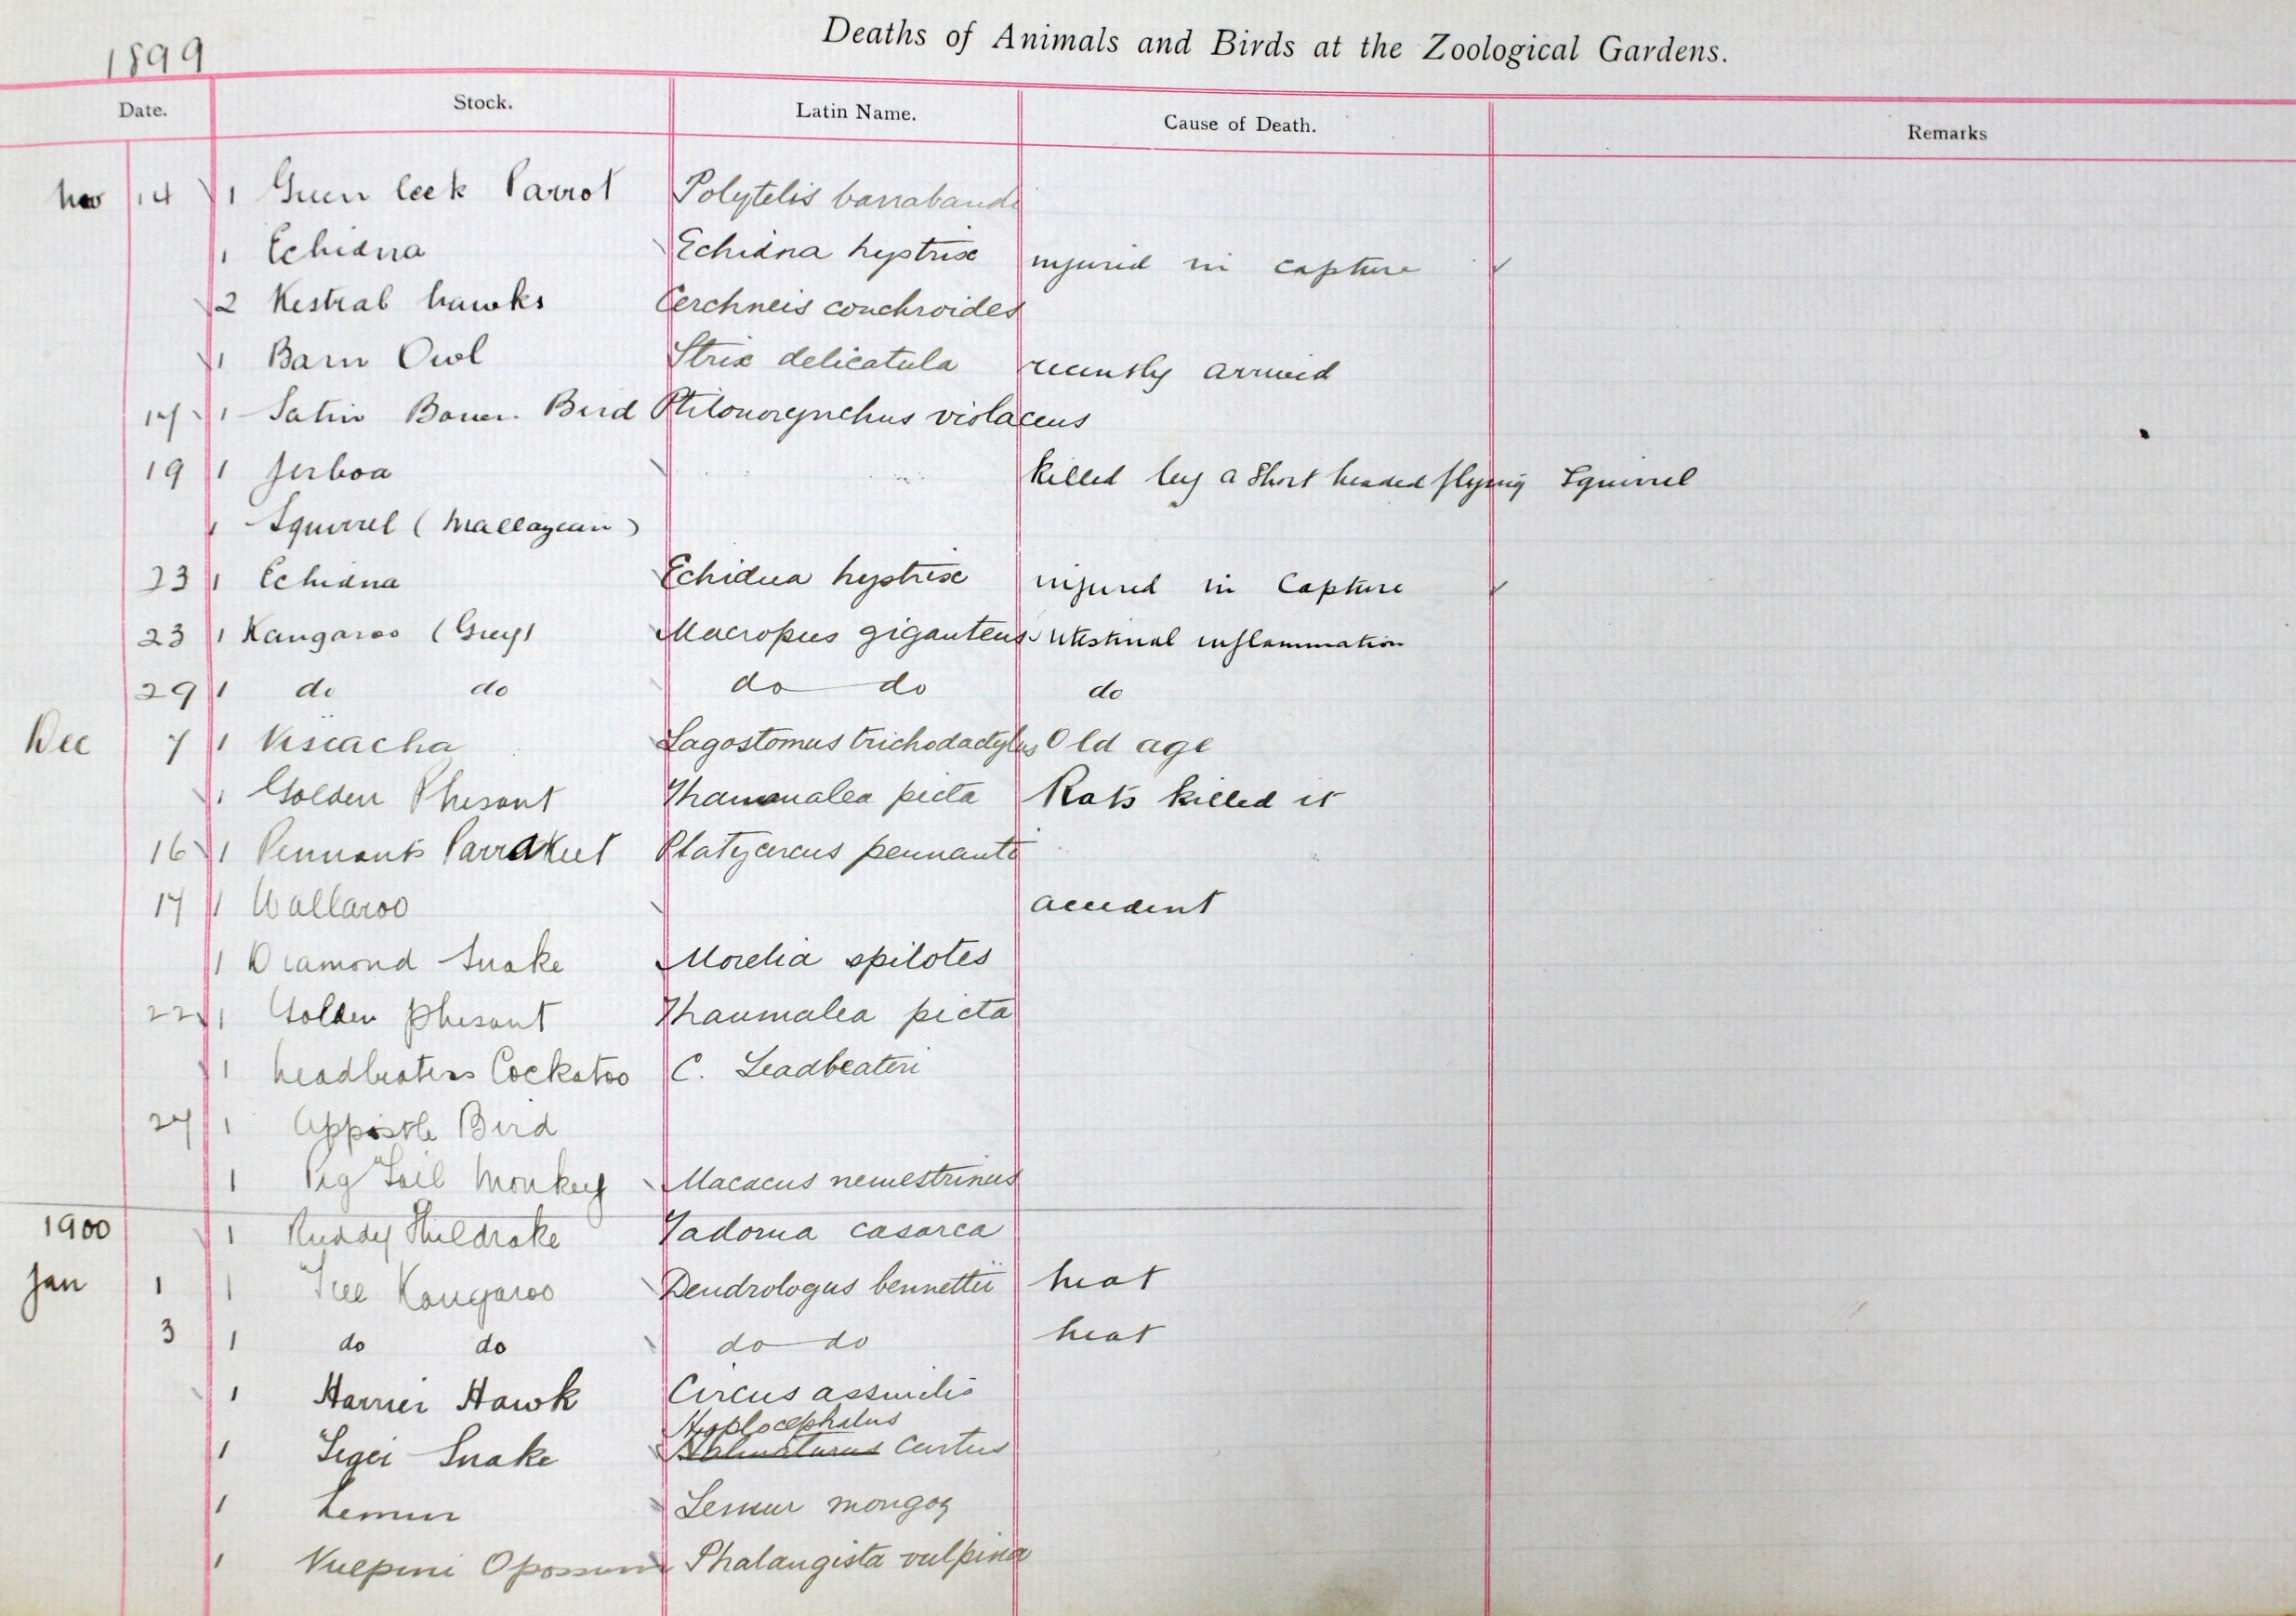 1899
Deaths of Animals and Birds at the Zoological Gardens.
Date. Stock. Latin Name. Cause of Death. Remarks
Nov 14 1 Green leek Parrot Polytelis barrabandi
1 Echidna Echidna hystrix injured in capture
2 Kestral hawks Cerchneis conchroides
1 Barn Owl Strix delicatula recently arrived
17 1 Satin Bower Bird Ptilonorynchus violaceus
19 1 Jerboa killed by a Short headed flying Squirrel
1 Squirrel (Mallayean)
23 1 Echidna Echidna hystrix injured in Capture
23 1 Kangaroo (Grey) Macropus giganteus Intestinal inflammation
29 1 do do do do do
Dec 7 1 Viscacha Lagostomus trichodactylus Old age
1 Golden Phesant Thaumalea picta Rats killed it
16 1 Pennants Parrakeet Platycercus pennanti
17 1 Wallaroo accident
1 Diamond Snake Morelia spilotes
22 1 Golden phesant Thaumalea picta
1 Leadbeaters Cockatoo C. Leadbeateri
27 1 Appostle Bird
1 Pig Tail Monkey Macacus nemestrinus
1900 1 Ruddy Shildrake Tadorna casarca
Jan 1 1 Tree Kangaroo Dendrologus bennettii heat
3 1 do do do do heat
1 Harrier Hawk Circus assimilis
Hoplocephalus
1 Tiger Snake curtus
1 Lemur Lemur mongoz
1 Vulpine Opossum Phalangista vulpina